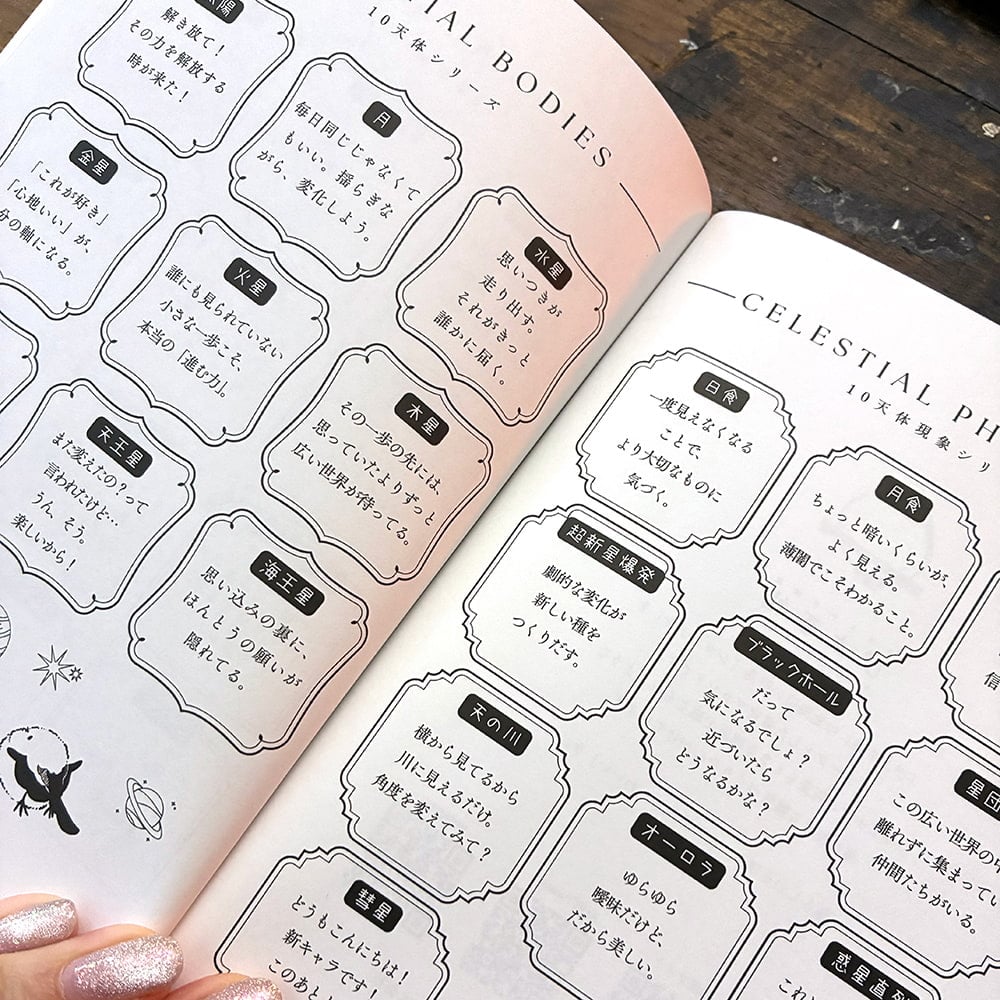 BODIES
10天体シリーズ
解き放て!
その力を解放する
時が来た!
月
毎日同じじゃなくて
もいい。揺らぎな
がら、変化しよう。
水星
思いつきが
走り出す。
それがきっと
誰かに届く。
金星
「これが好き」
「心地いい」が、
分の軸になる。
火星
誰にも見られていない
小さな一歩こそ、
本当の「進む力」。
木星
その一歩の先には、
思っていたよりずっと
広い世界が待ってる。
天王星
まだ変えたの?って
言われたけど…
うん、そう。
楽しいから!
海王星
思い込みの裏に、
ほんとうの願いが
隠れてる。
CELESTIAL PH
10天体現象シリ
日食
一度見えなくなる
ことで、
より大切なものに
気づく。
月食
ちょっと暗いくらいが、
よく見える。
薄闇でこそわかること。
超新星爆発
劇的な変化が
新しい種を
つくりだす。
ブラックホール
だって
気になるでしょ?
近づいたら
どうなるかな?
信
天の川
横から見てるから
川に見えるだけ。
角度を変えてみて?
オーロラ
ゆらゆら
曖昧だけど、
だから美しい。
星団
この広い世界の中
離れずに集まってい
仲間たちがいる。
彗星
どうもこんにちは!
新キャラです!
このあと
惑星直列